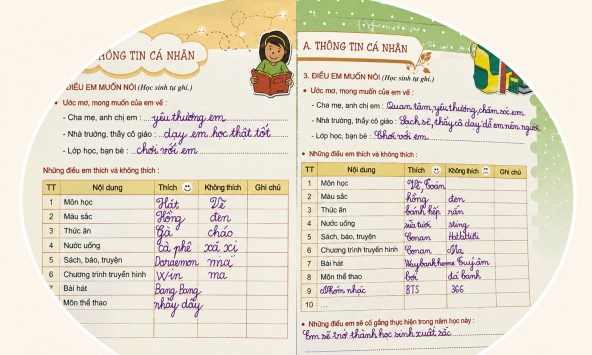 THÔNG TIN CÁ NHÂN
ĐIỀU EM MUỐN NÓI (Học sinh tự ghi.)
Ước mơ, mong muốn của em về :
- Cha mẹ, anh chị em : yêu thương em
- Nhà trường, thầy cô giáo : dạy em học thật tốt
- Lớp học, bạn bè : chơi với em
Những điều em thích và không thích :
TT Nội dung Thích Không thích Ghi chú
1 Môn học Hát Vẽ
2 Màu sắc Hồng đen
3 Thức ăn Gà cháo
4 Nước uống Cà phê xá xi
5 Sách, báo, truyện Doraemon ma
6 Chương trình truyền hình Win ma
7 Bài hát Bang Bang
Môn thể thao nhảy dây
A. THÔNG TIN CÁ NHÂN
3. ĐIỀU EM MUỐN NÓI (Học sinh tự ghi.)
Ước mơ, mong muốn của em về :
- Cha mẹ, anh chị em : Quan tâm, yêu thương, chăm sóc em
- Nhà trường, thầy cô giáo : Sạch sẽ, thầy cô dạy dỗ em nên người
- Lớp học, bạn bè : Chơi với em
Những điều em thích và không thích
TT Nội dung Thích Không thích Ghi chú
1 Môn học Vẽ, Toán
2 Màu sắc hồng đen
3 Thức ăn bánh xếp rán
4 Nước uống sữa tươi sting
5 Sách, báo, truyện Conan
6 Chương trình truyền hình Conan Ma
7 Bài hát Waybackhome Tuý âm
8 Môn thể thao bơi đá banh
9 Nhóm nhạc BTS 366
10
Những điều em sẽ cố gắng thực hiện trong năm học này :
Em sẽ trở thành học sinh xuất sắc